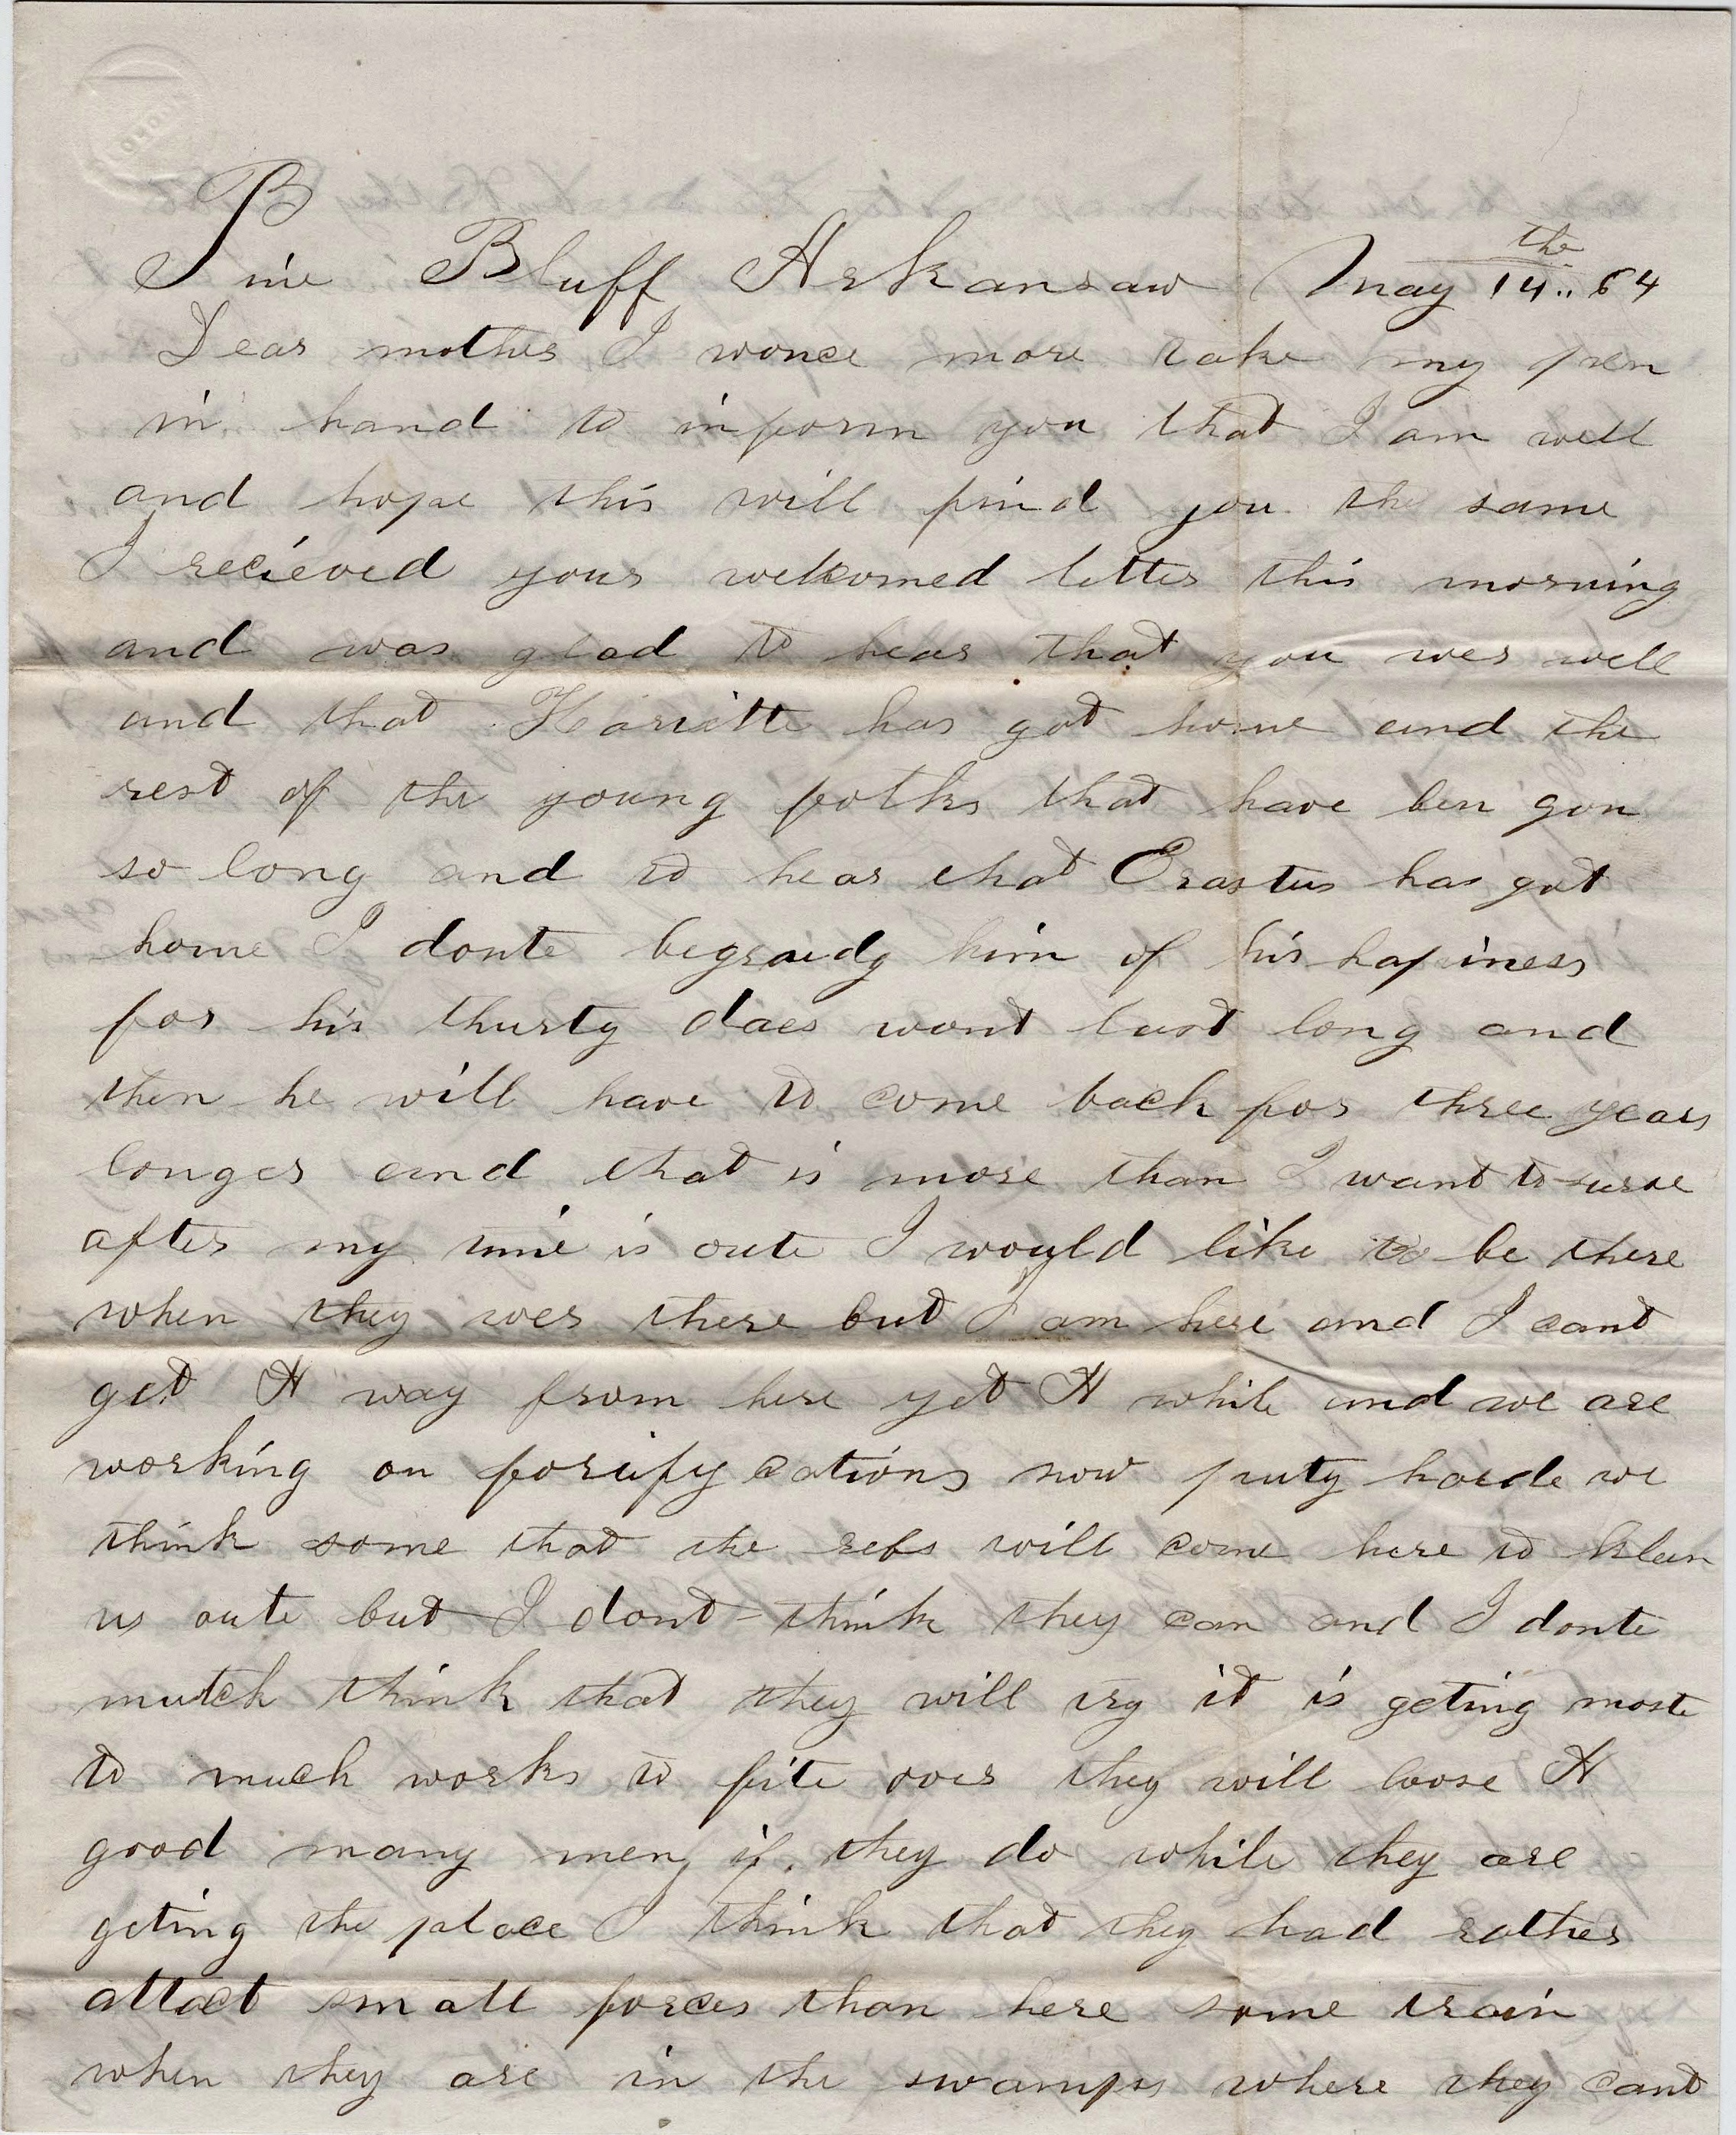 Pine Bluff Arkansaw May 14th.. 64
Dear mother I wonce more take my pen
in hand to inform you that I am well
and hope this will find you the same
I recieved your welkomed letter this morning
and was glad to hear that you wer well
and that Harriette has got home and the
rest of the young folks that have ben gon
so long and to hear that Erastus has got
home I donte begraidg him of his hapiness
for his thurty daes wont last long and
then he will have to come back for three years
longer and that is more than I want to serve
after my time is oute I would like to be there
when they wer there but I am here and I cant
get A way from here yet A while and we are
working on forify cations now puty harde we
think some that the rebs will come here to klean
us oute but I dont think they can and I donte
mutch think that they will try it is geting moste
to much works to fite over they will loose A
good many men if they do while they are
geting the place I think that they had rather
attact small forces than here some train
when they are in the swamps where they cant